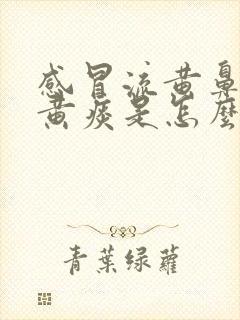 感冒流黄鼻
黄痰是怎麼
青葉綠蘿